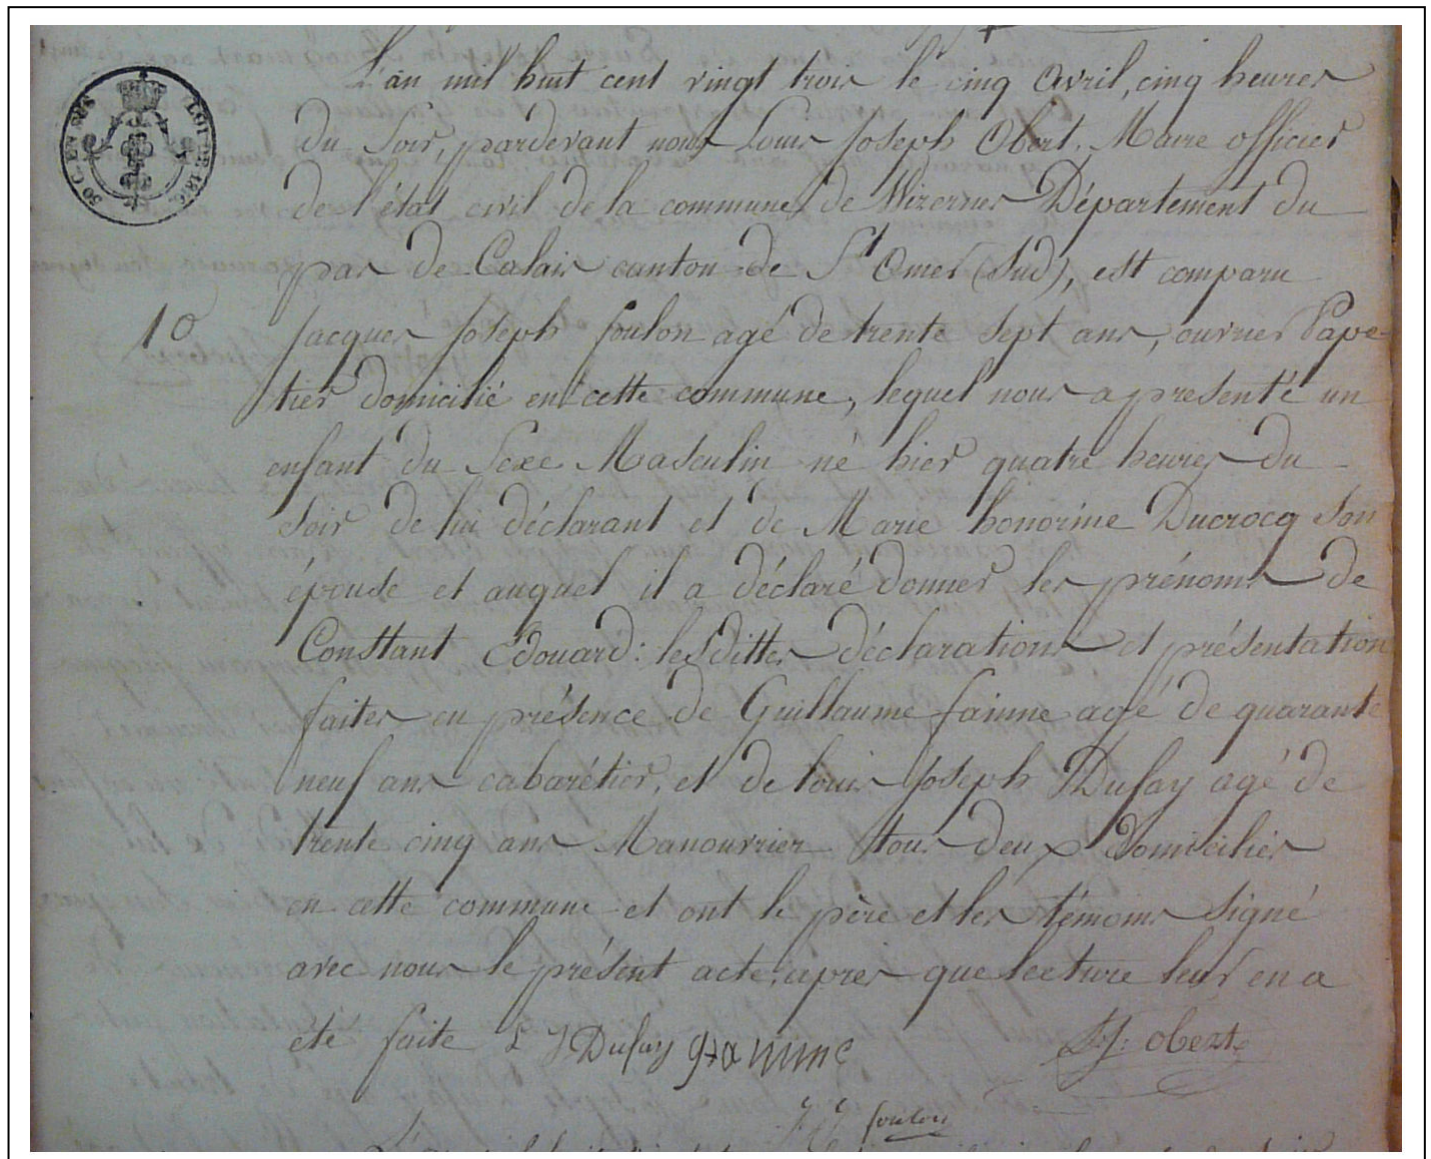 L'an mil huit cent vingt trois le cinq avril, cinq heures
du Soir, pardevant nous Louis Joseph Obert, Maire officier
de l'état civil de la commune de Wizernes Département du
pas de Calais canton de St Omer (Sud), est comparu
10 Jacques Joseph foulon agé de trente sept ans, ouvrier Pape-
tier domicilié en cette commune, lequel nous a presenté un
enfant du Sexe Masculin né hier quatre heures du
Soir de lui déclarant et de Marie honorine Ducrocq Son
épouse et auquel il a déclaré donner les prénoms de
Constant Edouard : lesdittes déclarations et présentation
faites en présence de Guillaume famme agé de quarante
neuf ans cabarétier, et de louis Joseph Dufay agé de
trente cinq ans Manouvrier tous deux domiciliés
en cette commune et ont le père et les témoins Signé
avec nous le présent acte, apres que lecture leur en a
eté faite L J Dufay
L. J. obert
J J foulon